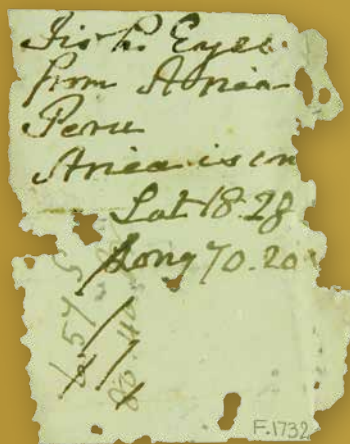 Fish Eyes
from Arica
Peru
Arica is in
Lat 18.28
Long 70.20
F.1732